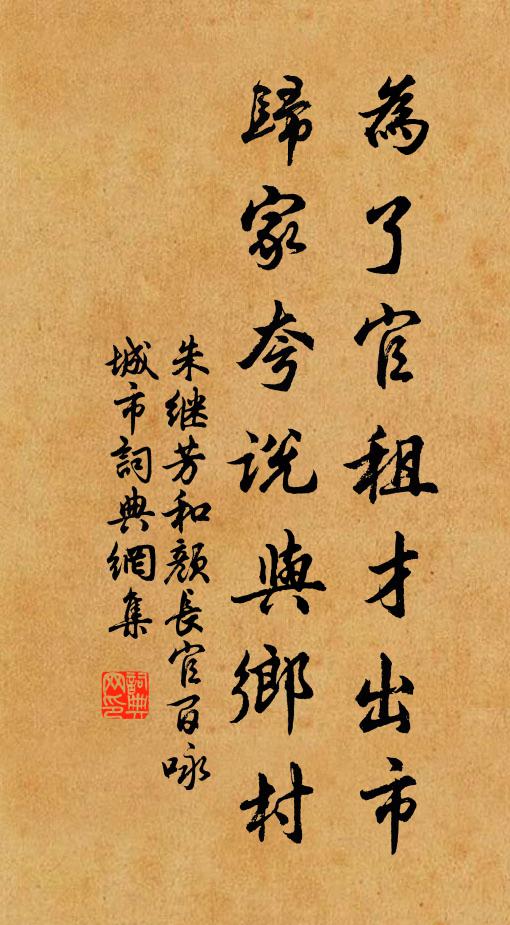 為了官租才出市
歸家夸說與鄉村
朱继芳和顏長官百咏
城市詞典網集
詞典
网印